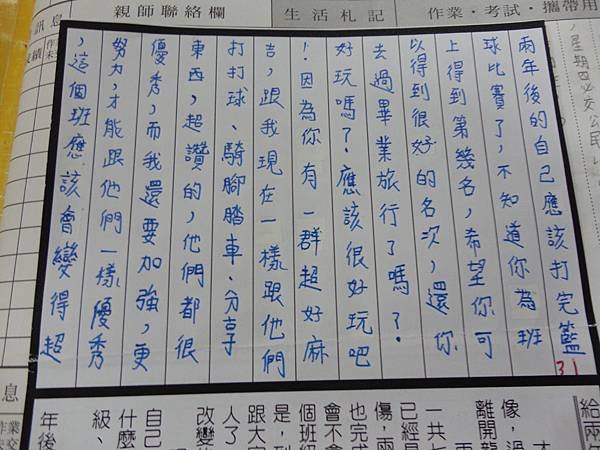 親師聯絡欄
生活札記
作業·考試·攜帶用
兩年後的自己應該打完籃
球比賽了,不知道你為班
上得到第幾名,希望你可
以得到很好的名次,還你
去過畢業旅行了嗎?
好玩嗎?應該很好玩吧
!因為你有一群超好麻
吉,跟我現在一樣跟他們
打打球、騎腳踏車、分享
東西,超讚的,他們都很
優秀,而我還要加強,更
努力,才能跟他們一樣優秀
,這個班應該會變得超
31
訊息
星期四必交公民
息
給兩
像,過
離開龍
一共七
已經是
傷,兩
也完成
會不會
個班級
是,到
跟大家
人了
改變
自己
什麼
級、
年後